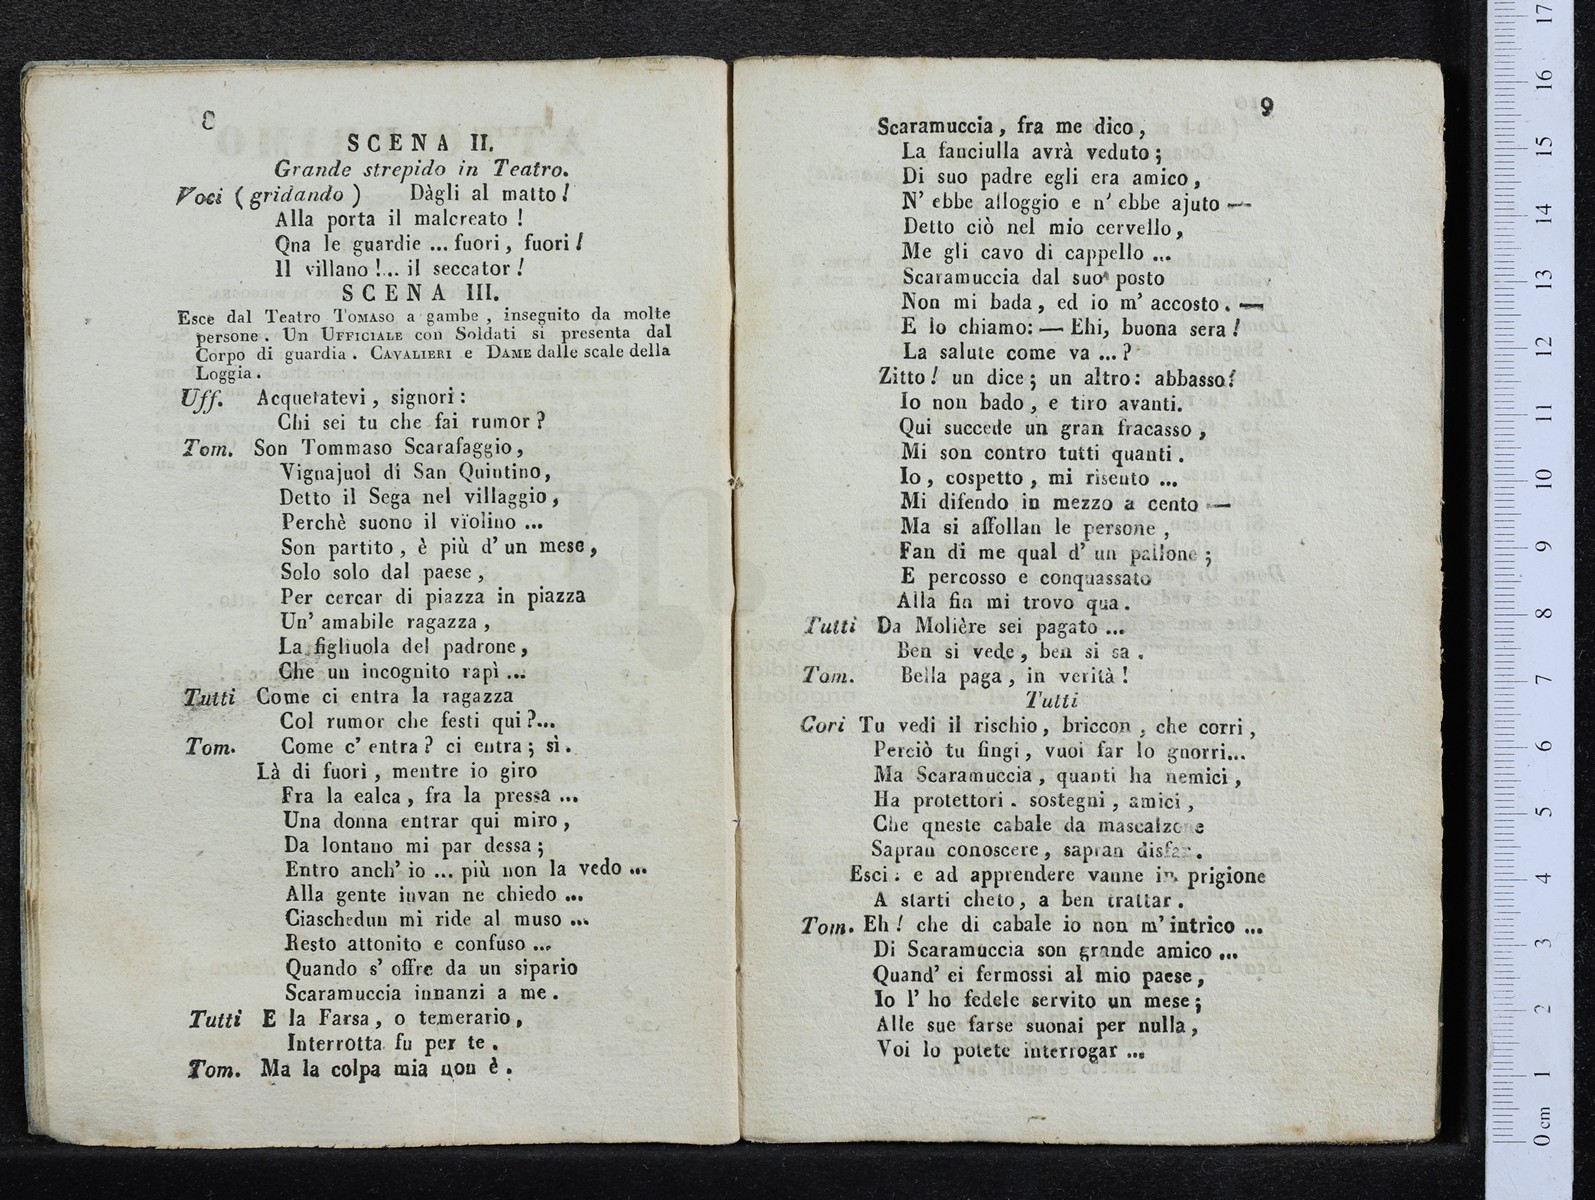 8
SCENA II.
Grande strepido in Teatro.
Voci ( gridando ) Dàgli al matto !
Alla porta il malcreato !
Qna le guardie ... fuori, fuori !
Il villano !... il seccator !
SCENA III.
Esce dal Teatro TOMASO a gambe , inseguito da molte
persone . Un UFFICIALE con Soldati si presenta dal
Corpo di guardia . CAVALIERI e DAME dalle scale della
Loggia .
Uff. Acquetatevi , signori :
Chi sei tu che fai rumor ?
Tom. Son Tommaso Scarafaggio ,
Vignajuol di San Quintino,
Detto il Sega nel villaggio ,
Perchè suono il violino ...
Son partito , è più d' un mese ,
Solo solo dal paese ,
Per cercar di piazza in piazza
Un' amabile ragazza ,
La figliuola del padrone ,
Che un incognito rapì ...
Tutti Come ci entra la ragazza
Col rumor che festi qui ?...
Tom. Come c' entra ? ci entra ; sì .
Là di fuori , mentre io giro
Fra la ealca , fra la pressa ...
Una donna entrar qui miro ,
Da lontano mi par dessa ;
Entro anch' io ... più non la vedo ...
Alla gente invan ne chiedo ...
Ciaschedun mi ride al muso ...
Resto attonito e confuso ...
Quando s' offre da un sipario
Scaramuccia innanzi a me .
Tutti E la Farsa , o temerario ,
Interrotta fu per te .
Tom. Ma la colpa mia non è .
9
Scaramuccia , fra me dico ,
La fanciulla avrà veduto ;
Di suo padre egli era amico ,
N' ebbe alloggio e n' ebbe ajuto —
Detto ciò nel mio cervello ,
Me gli cavo di cappello ...
Scaramuccia dal suo posto
Non mi bada , ed io m' accosto . —
E lo chiamo : — Ehi, buona sera !
La salute come va ... ?
Zitto ! un dice ; un altro : abbasso !
Io non bado , e tiro avanti.
Qui succede un gran fracasso ,
Mi son contro tutti quanti .
Io , cospetto , mi risento ...
Mi difendo in mezzo a cento —
Ma si affollan le persone ,
Fan di me qual d' un pallone ;
E percosso e conquassato
Alla fin mi trovo qua .
Tutti Da Molière sei pagato ...
Ben si vede , ben si sa .
Tom. Bella paga , in verità !
Tutti
Cori Tu vedi il rischio , briccon , che corri ,
Perciò tu fingi , vuoi far lo gnorri...
Ma Scaramuccia , quanti ha nemici ,
Ha protettori . sostegni , amici ,
Che qneste cabale da mascalzone
Sapran conoscere , sapran disfar .
Esci : e ad apprendere vanne in prigione
A starti cheto , a ben trattar .
Tom. Eh ! che di cabale io non m' intrico ...
Di Scaramuccia son grande amico ...
Quand' ei fermossi al mio paese ,
Io l' ho fedele servito un mese ;
Alle sue farse suonai per nulla ,
Voi lo potete interrogar ...
17
16
15
14
13
12
11
10
9
8
7
6
5
4
3
2
1
0 cm